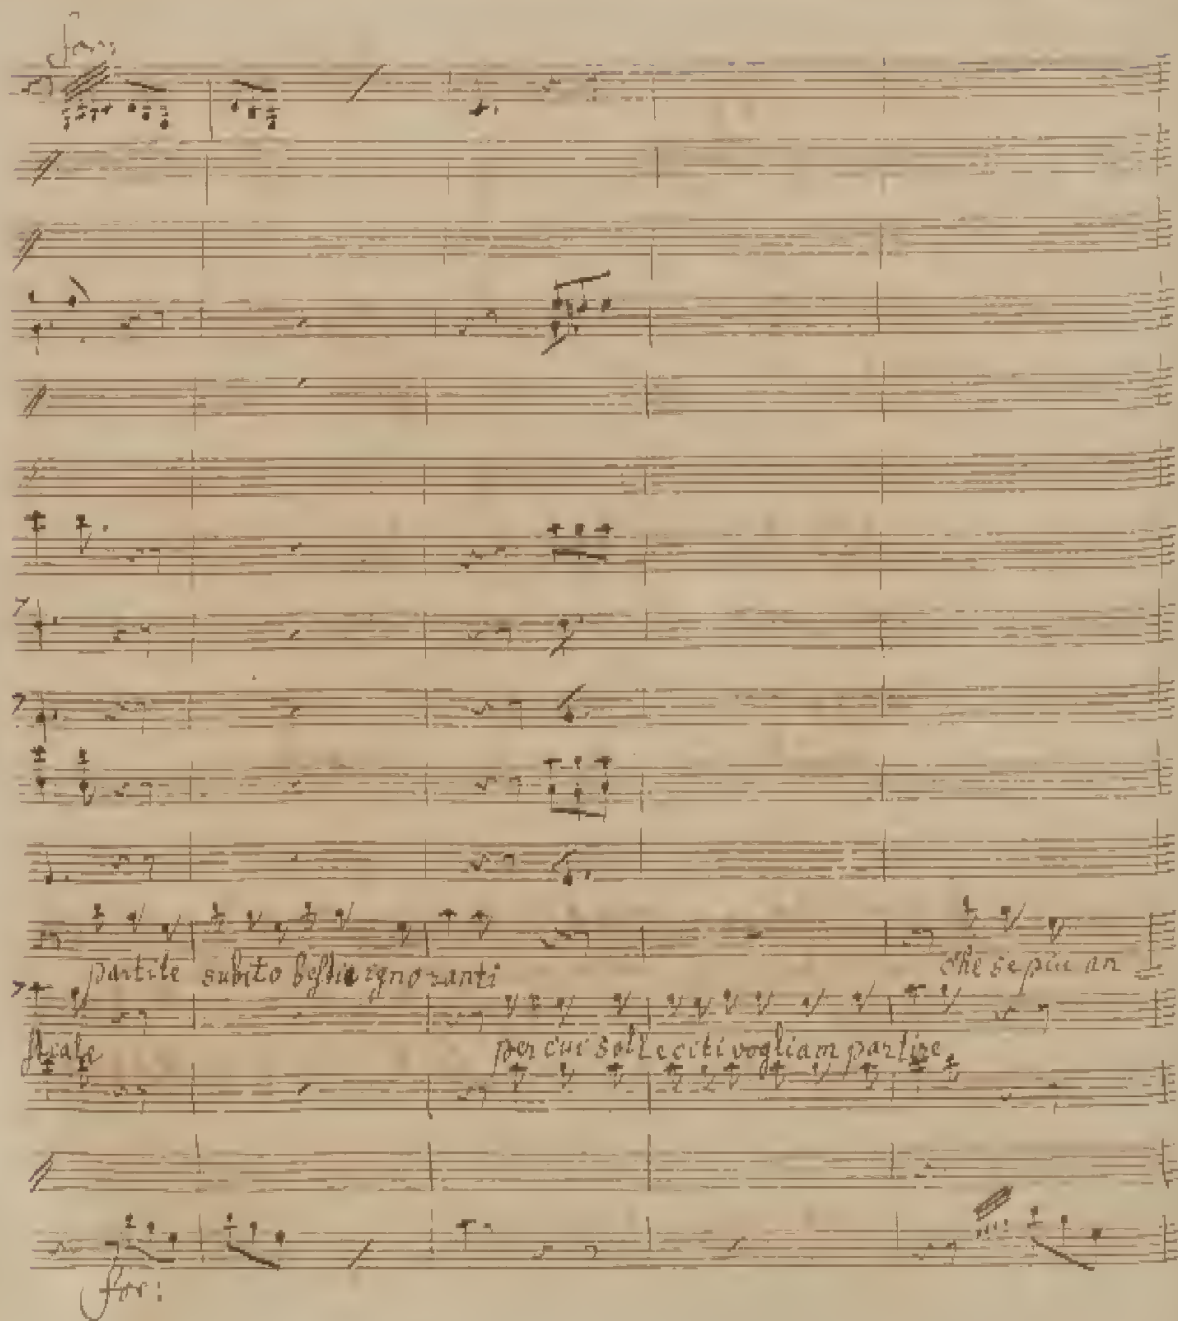 for:
partite subito bestie ignoranti che se più an
per cui solleciti vogliam partire
for: